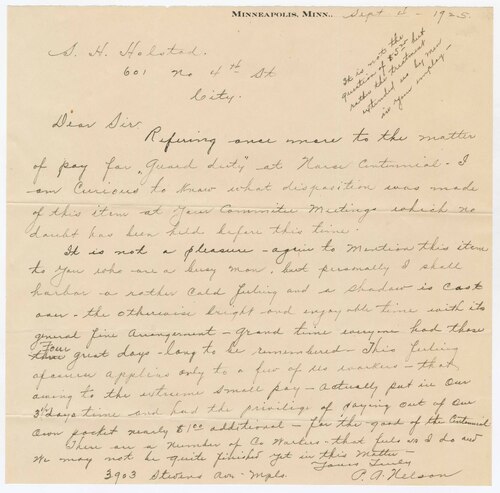 MINNEAPOLIS, MINN., Sept 4 - 1925.
S. H. Holstad.
601 No 4th St
City.
It is not the
question of $5.00 but
rather the treatment
extended us by men
in your employ -
Dear Sir
Refering once more to the matter
of pay for "Guard duty" at Norse Centennial. I
am Curious to Know what disposition was made
of this item at Your Committee Meetings which no
doubt has been held before this time.
It is not a pleasure - again to Mention this item
to You who are a busy man, but personally I shall
harbor a rather Cold feeling and a shadow is Cast
over - the otherwise bright and enjoyable time with its
general fine Arrangement - Grand time everyone had those
Four
three great days - long to be remembered - This feeling
of course applies only to a few of us workers - that
owing to the extreme Small pay - Actually put in Our
3 days time and had the privilege of paying out of Our
Own pocket nearly $1.00 additional - for the good of the Centennial
There are a Number of Co Workers - that feels as I do and
We may not be quite finished yet in this Matter -
Yours Truly
3903 Stevens Ave - Mpls. P. A. Nelson